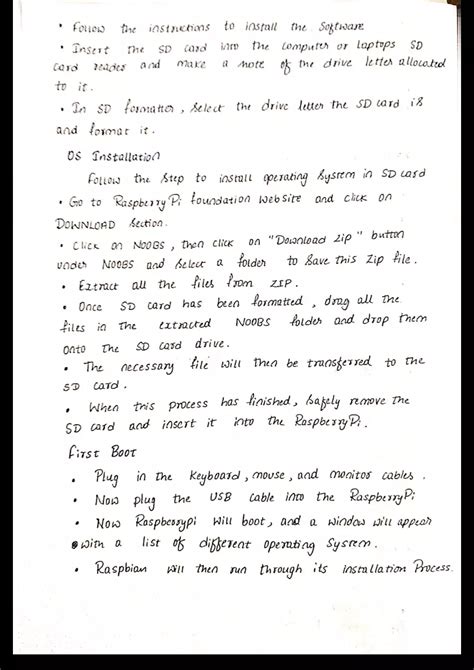 • Follow the instructions to install the Software
• Insert the SD card into the computer or laptops SD
card reader and make a note of the drive letter allocated
to it.
• In SD formatter, select the drive letter the SD card is
and format it.
OS Installation
Follow the step to install operating System in SD card
• Go to Raspberry Pi foundation website and click on
DOWNLOAD section.
• Click on NOOBS, then click on "Download zip" button
under NOOBS and select a folder to save this zip file.
• Extract all the files from ZIP.
• Once SD card has been formatted, drag all the
files in the extracted NOOBS folder and drop them
onto the SD card drive.
• The necessary file will then be transferred to the
SD card.
• When this process has finished, safely remove the
SD card and insert it into the RaspberryPi.
First Boot
• Plug in the keyboard, mouse, and monitor cables.
• Now plug the USB cable into the RaspberryPi
• Now Raspberrypi will boot, and a window will appear
with a list of different operating System.
• Raspbian will then run through its installation Process.